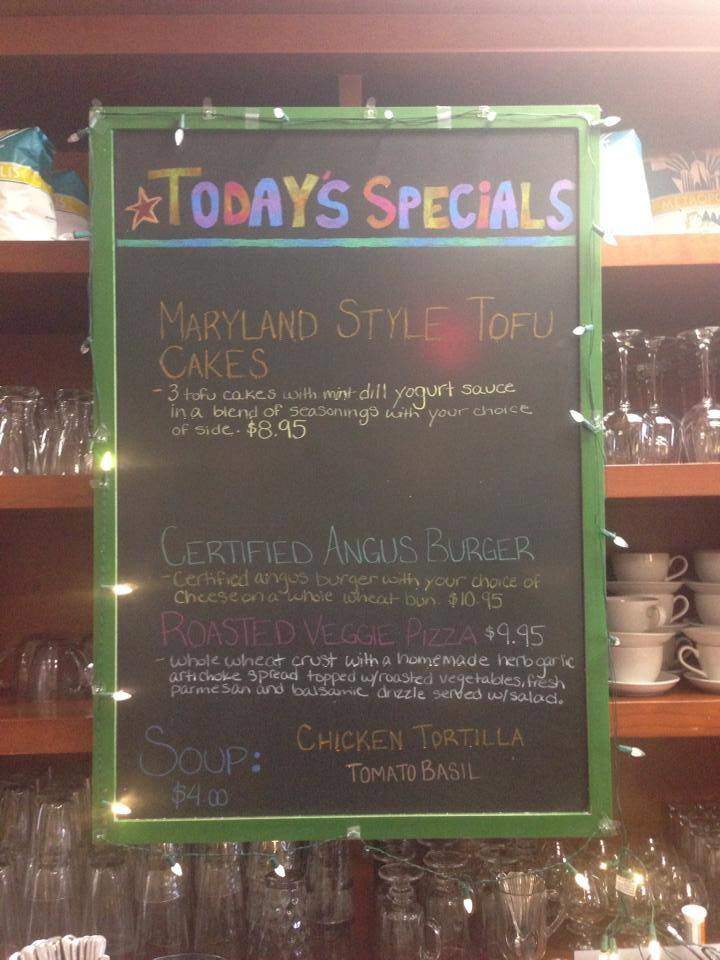 TODAY'S SPECIALS
MARYLAND STYLE TOFU
CAKES
- 3 tofu cakes with mint dill yogurt sauce
in a blend of seasonings with your choice
of side. $8.95
CERTIFIED ANGUS BURGER
- Certified angus burger with your choice of
cheese on a whole wheat bun. $10.95
ROASTED VEGGIE PIZZA $9.95
- whole wheat crust with a homemade herb garlic
artichoke spread topped w/roasted vegetables, fresh
parmesan and balsamic drizzle served w/salad.
SOUP: CHICKEN TORTILLA
$4.00 TOMATO BASIL